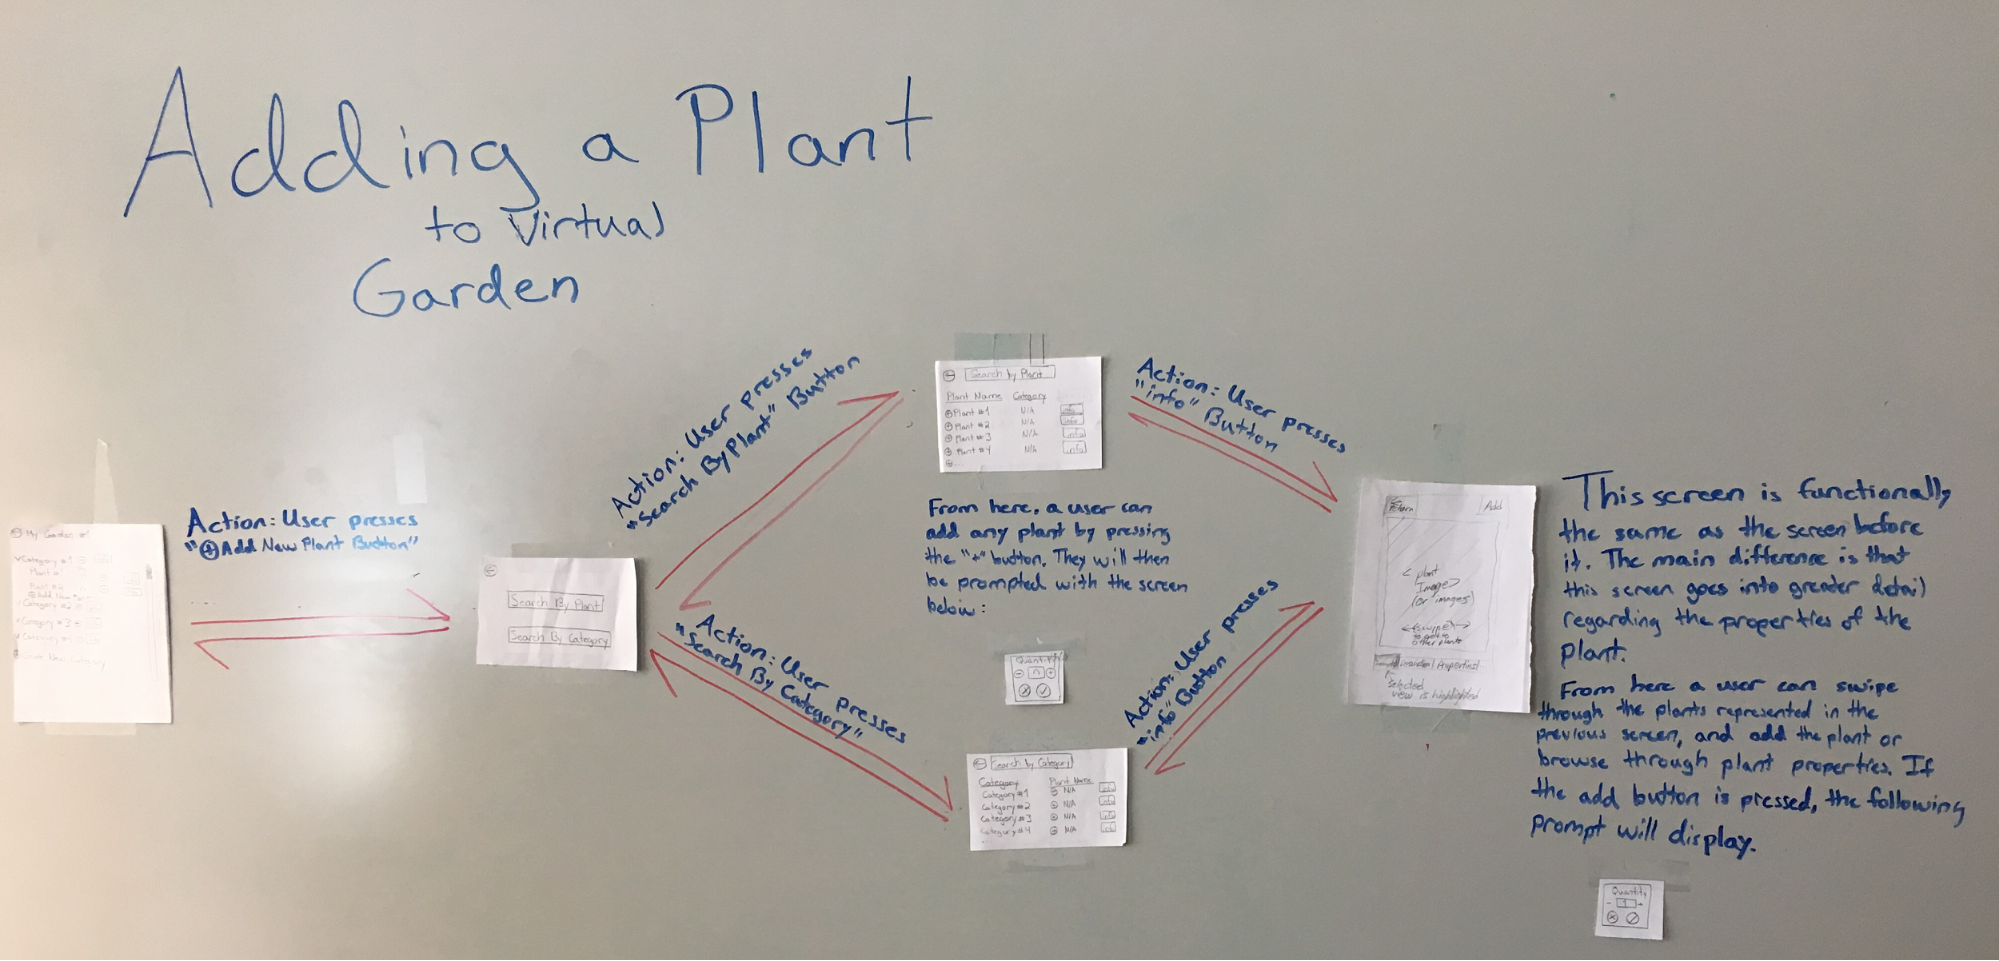 Adding a Plant
to Virtual
Garden
My Garden #1
Category #1
Plant #
Plant #2
⊕ Add New
Category #2
Category #3
Category #
Category
Action: User presses
"⊕Add New Plant Button"
Search By Plant
Search By Category
Action: User presses
"Search By Plant" Button
Action: User presses
"Search By Category"
Search by Plant
Plant Name Category
⊕ Plant #1 N/A info
⊕ Plant #2 N/A info
⊕ Plant #3 N/A info
⊕ Plant #4 N/A info
⊕...
From here, a user can
add any plant by pressing
the "+" button. They will then
be prompted with the screen
below:
Quantity
Search by Category
Category Plant Name
Category #1 ⊕ N/A info
Category #2 ⊕ N/A info
Category #3 ⊕ N/A info
Category #4 ⊕ N/A info
Action: User presses
"info" Button
Action: User presses
"info" Button
Return Add
< plant
Image>
(or images)
<-(swipe)->
to get to
other plants
Properties
selected
view is highlighted
This screen is functionally
the same as the screen before
it. The main difference is that
this screen goes into greater detail
regarding the properties of the
plant.
From here a user can swipe
through the plants represented in the
previous screen, and add the plant or
browse through plant properties. If
the add button is pressed, the following
prompt will display.
Quantity
- 1 +